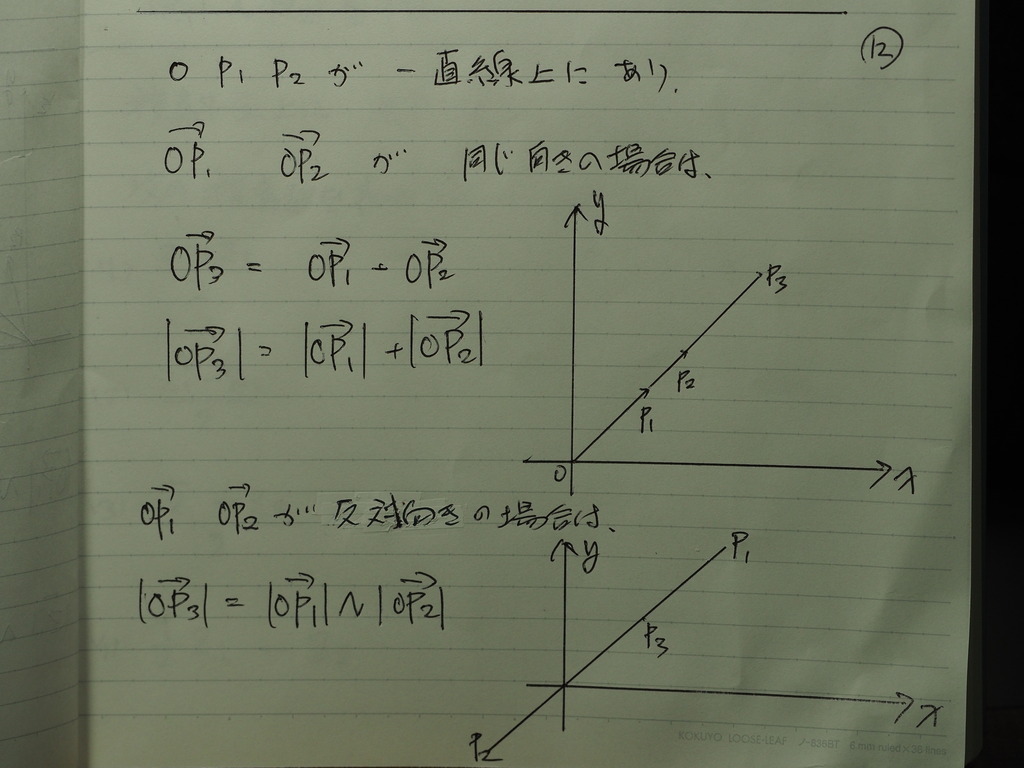 ⑫
O P₁ P₂ が 一直線上にあり、
→OP₁ →OP₂ が 同じ向きの場合は、
→OP₃ = →OP₁ + →OP₂
|→OP₃| = |→OP₁| + |→OP₂|
y
P₃
P₂
P₁
O
x
→OP₁ →OP₂ が 反対向きの場合は、
|→OP₃| = |→OP₁| ~ |→OP₂|
y
P₁
P₃
x
P₂
KOKUYO LOOSE-LEAF ノ-836BT 6 mm ruled×36 lines